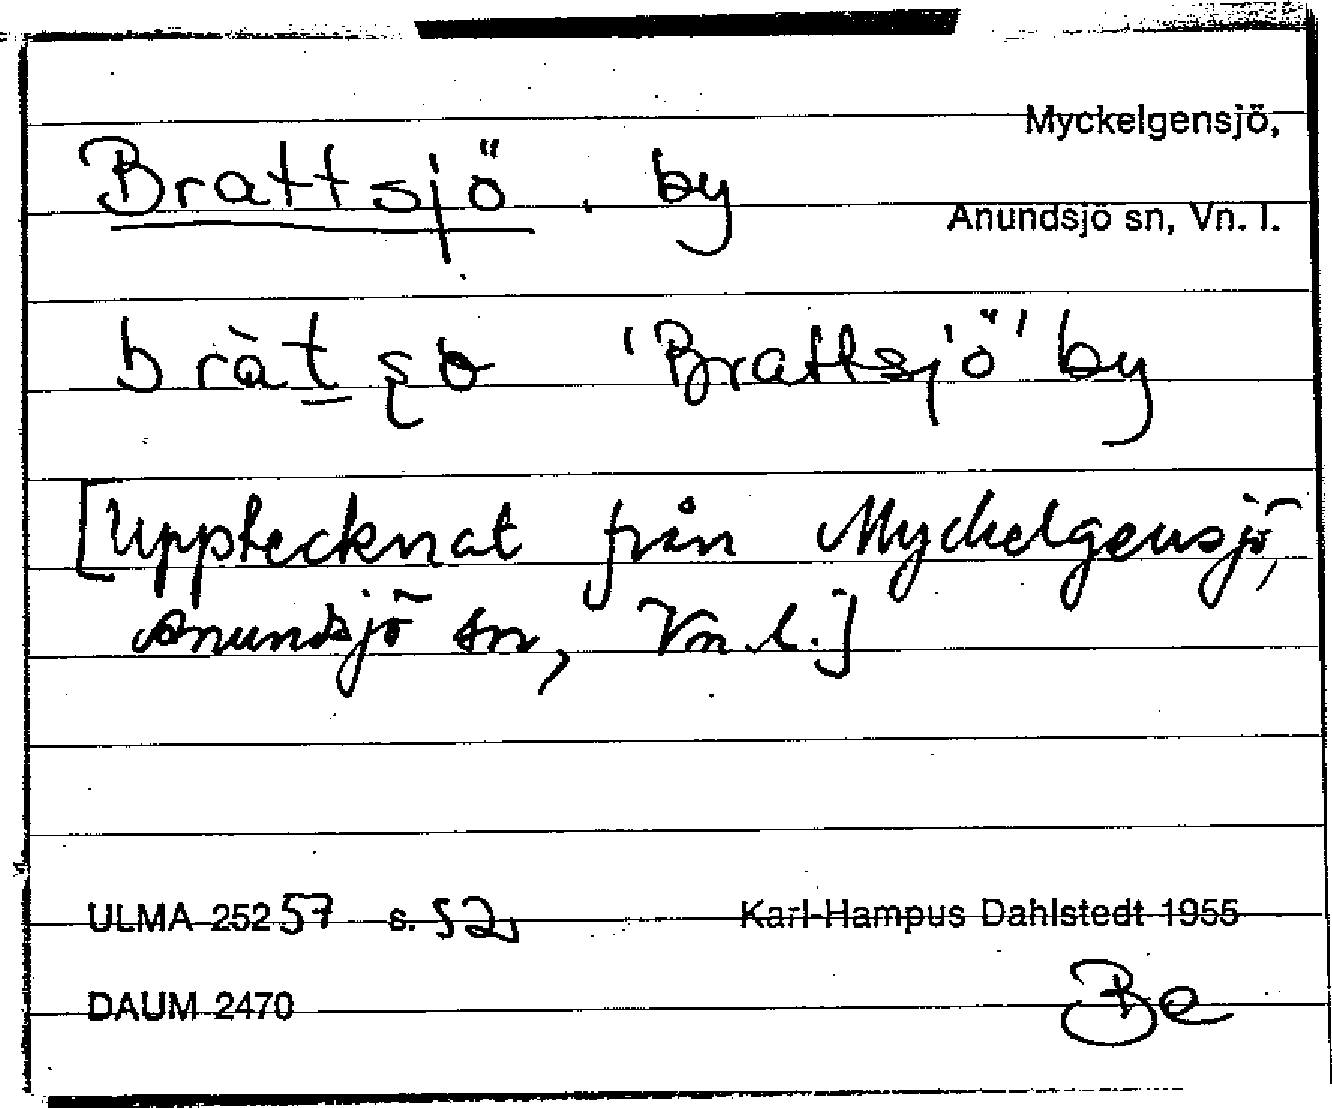 Myckelgensjö,
Brattsjö, by
Anundsjö sn, Vn. l.
"Brattsjö" by
[Upptecknat från Myckelgensjö,
Anundsjö sn, Vn. l.]
ULMA 25257 s. 52 Karl-Hampus Dahlstedt 1955
DAUM 2470 Be